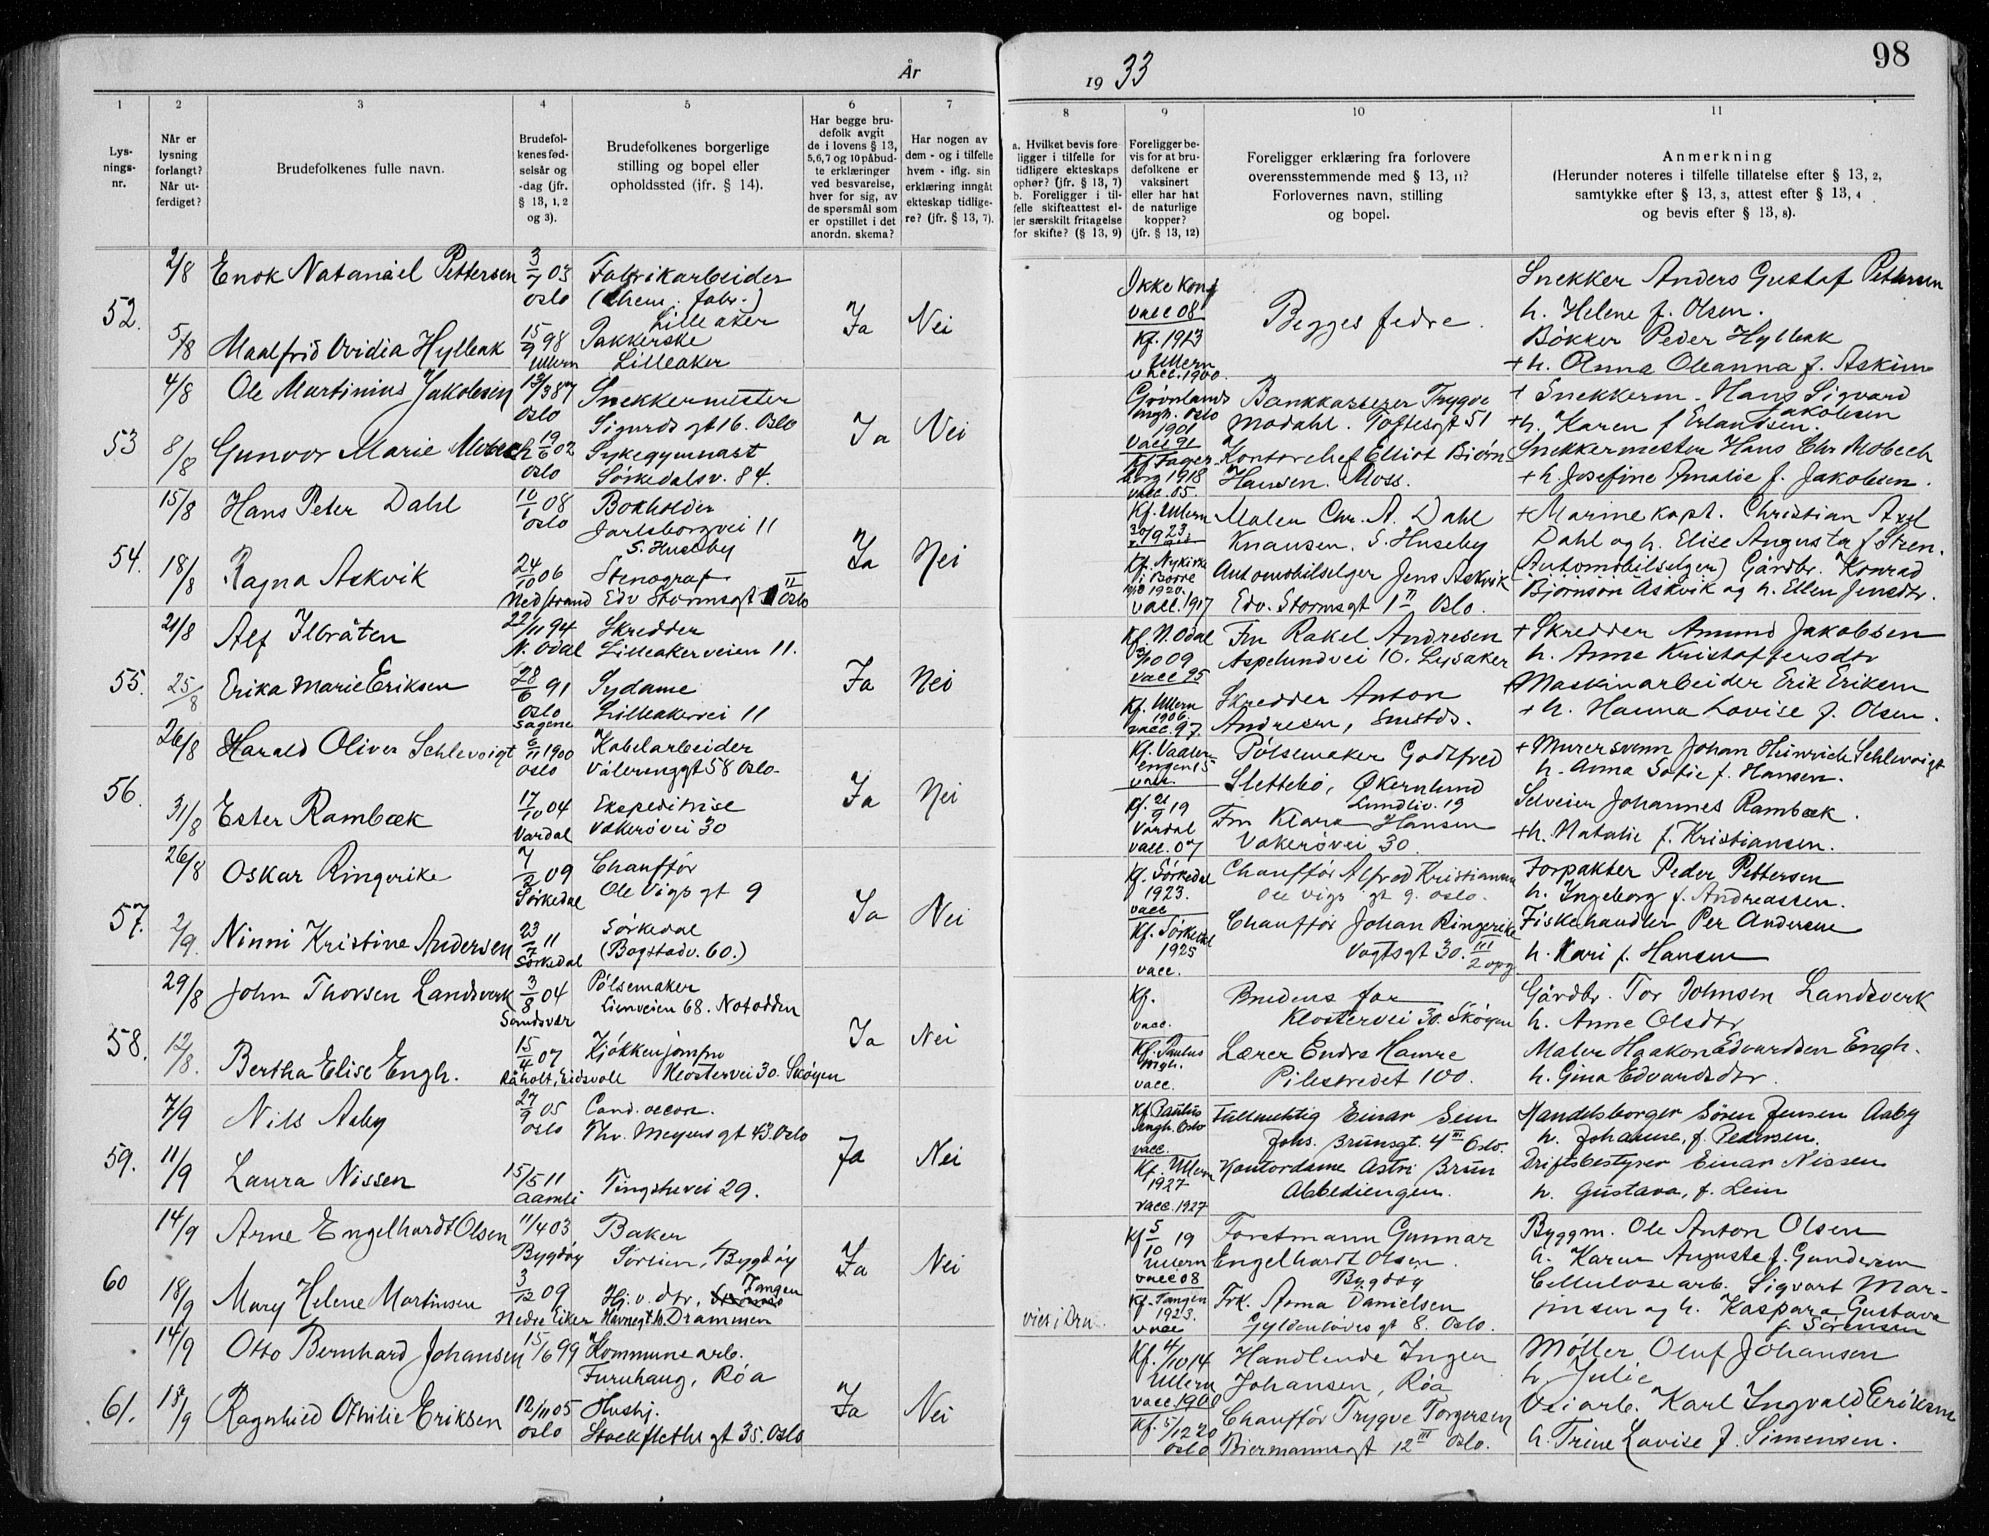 År
19 33
98
1
2
3
4
5
6
7
8
9
10
11
Lys-
nings-
nr.
Når er
lysning
forlangt?
Når ut-
ferdiget?
Brudefolkenes fulle navn.
Brudefol-
kenes fød-
selsår og
-dag (jfr.
§ 13, 1, 2
og 3).
Brudefolkenes borgerlige
stilling og bopel eller
opholdssted (ifr. § 14).
Har begge bru-
defolk avgit
de i lovens § 13,
5, 6, 7 og 10 påbud-
te erklæringer
ved besvarelse,
hver for sig, av
de spørsmål som
er opstillet i det
anordn. skema?
Har nogen av
dem - og i tilfelle
hvem - iflg. sin
erklæring inngåt
ekteskap tidlige-
re? (jfr. § 13, 7).
a. Hvilket bevis fore
ligger i tilfelle for
tidligere ekteskaps
ophør? (jfr. § 13, 7)
b. Foreligger i til-
felle skifteattest el-
ler særskilt fritagelse
for skifte? (§ 13, 9)
Foreligger be-
vis for at bru-
defolkene er
vaksinert
eller har hat
de naturlige
kopper?
(jfr. § 13, 12)
Foreligger erklæring fra forlovere
overensstemmende med § 13, 11?
Forlovernes navn, stilling
og bopel.
Anmerkning
(Herunder noteres i tilfelle tillatelse efter § 13, 2,
samtykke efter § 13, 3, attest efter § 13, 4
og bevis efter § 13, 8).
52.
2/8 Enok Natanael Pettersen 3/7 03 Oslo
Fabrikarbeider
(Chem. fabr.)
Lilleaker
5/8 Maalfrid Ovidia Hylbak 15/9 98 Ullern
Pakkerske
Lilleaker
Ja Nei
Ikke konf
vacc 08
Kf. 1913
Ullern
vacc. 1900.
Begges fedre.
Snekker Anders Gustaf Pettersen
h. Helene f. Olsen.
Bøkker Peder Hylbak
+ h. Anna Oleanna f. Askim
53
4/8 Ole Martinius Jakobsen 12/3 87 Oslo
Snekkermester
Sigurds gt 16. Oslo
8/8 Gunvor Marie Mobech 19/6 02 Oslo
Sykegymnast
Sørkedalsv. 84.
Ja Nei
Grønlands
mgh. Oslo
1901
Vacc 92
Kf Fager-
borg 1918
vacc. 05.
Bankkasserer Trygve
Modahl. Toftesgt 51
Kontorchef Elliot Bjørn-
Hansen. Moss.
+ Snekkerm. Hans Sigvard
Jakobsen
+ h. Karen f Erlandsen.
Snekkermester Hans Chr. Mobech
+ h. Josefine Amalie f. Jakobsen.
54.
15/8 Hans Peter Dahl 10/1 08 Oslo
Bokholder
Jarlsborgvei 11
S. Huseby
18/8 Ragna Askvik 24/10 06 Nedstrand
Stenograf
Edv Stormsgt 1 II Oslo
Ja Nei
Kf. Ullern
30/9 23
Kf. Nykirke
i Borre
1920.
vacc. 1917
Maler Chr. A. Dahl
Knausen. S. Huseby
Automobilselger Jens Askvik
Edv. Stormsgt 1 II Oslo.
+ Marinekapt. Christian Axel
Dahl og h. Elise Augusta f Stren.
(Automobilselger) Gårdbr. Konrad
Bjørnson Askvik og h. Ellen Jensdtr.
55.
21/8 Alf Ilbråten 22/11 94 N. Odal
Skredder
Lilleakerveien 11.
25/8 Erika Marie Eriksen 28/6 91 Oslo Sagene
Sydame
Lilleakervei 11
Ja Nei
Kf. N. Odal
3/10 09
vacc 95
Kf. Ullern
1906.
vacc. 97.
Fru Rakel Andresen
Aspelundvei 10. Lysaker
Skredder Anton
Andresen, smstds.
+ Skredder Amund Jakobsen
h. Anne Kristoffersdtr
+ Maskinarbeider Erik Eriksen
+ h. Hanna Lovise f. Olsen.
56.
26/8 Harald Oliver Schlevoigt 6/11 1900 Oslo
Kabelarbeider
Vålerenggt 58 Oslo.
31/8 Ester Rambæk 17/10 04 Vardal
Ekspeditrise
Vækerøvei 30
Ja Nei
Kf. Vaaler-
engen 15
vacc.
Kf. 21/9 19
Vardal
vacc. 07
Pølsemaker Godtfred
Slettebø, Økernlund
Lundliv. 19
Fru Klara Hansen
Vækerøvei 30.
+ Murersvenn Johan Heinrich Schlevoigt
h. Anna Sofie f. Hansen.
Selveier Johannes Rambæk.
+ h. Natalie f. Kristiansen.
57.
26/8 Oskar Ringerike 7/2 09 Sørkedal
Chauffør
Ole Vigs gt 9
2/9. Ninni Kristine Andersen 23/7 11 Sørkedal
Sørkedal
(Bogstadv. 60.)
Ja Nei
Kf. Sørkedal
1923.
vacc
Kf. Sørkedal
1925
vacc.
Chauffør Alfred Kristiansen
Ole Vigs gt 9. Oslo.
Chauffør Johan Ringerike
Vogtsgt 30. III
2 opg.
Forpakter Peder Pettersen
h. Ingeborg f. Andreassen.
Fiskehandler Per Andersen
h. Kari f. Hansen
58.
29/8 John Thorsen Landsverk 3/8 04 Sandsvær
Pølsemaker
Lienveien 68. Notodden
12/8. Bertha Elise Engh. 15/4 07 Råholt, Eidsvoll
Kjøkkenjomfru
Klostervei 30. Skøyen
Ja Nei
Kf.
vacc.
Kf. Paulus
mgh.
vacc.
Brudens far
Klostervei 30. Skøyen
Lærer Endre Hamre
Pilestredet 100.
Gårdbr. Tor Johnsen Landsverk
h. Anne Olsdtr
Maler Haakon Edvardsen Engh.
h. Gina Edvardsdtr.
59.
7/9 Nils Aaby 27/9 05 Oslo
Cand. oecon.
Thv. Meyers gt 43. Oslo
11/9 Laura Nissen 15/5 11 Aamli
Tingstuvei 29.
Ja Nei
Kf. Paulus
mgh. Oslo
vacc.
Kf. Ullern
1927
vacc. 1927
Fullmektig Einar Sem
Johs. Brunsgt. 4 III Oslo.
Kontordame Astri Brun
Abbediengen.
Handelsborger Søren Jensen Aaby
h. Johanne, f. Pedersen.
Driftsbestyrer Einar Nissen
h. Gustava, f. Lein
60
14/9 Arne Engelhardt Olsen 11/4 03 Bygdøy
Baker
Bygdøy
18/9 Mary Helene Martinsen 3/12 09 Nedre Eiker
Hj. v. dtr, Tangen
Havnegt 10. Drammen
Ja Nei
viet i Dra.
Kf 5/10 19
Ullern
vacc 08
Kf. Tangen
1923.
vacc
Forstmann Gunnar
Engelhardt Olsen.
Bygdøy
Frk. Anna Danielsen
Gyldenløves gt 8. Oslo.
Byggm. Ole Anton Olsen
h. Karen Auguste f. Gundersen
Cellulosearb. Sigvart Mar-
tinsen og h. Kaspara Gustava
f. Sørensen
61.
14/9 Otto Bernhard Johansen 15/6 99
Kommunearb.
Furuhaug, Røa
18/9 Ragnhild Othilie Eriksen 12/11 05 Oslo
Hushj.
Stockfleths gt 35. Oslo
Ja Nei
Kf. 4/10 14
Ullern
vacc 1900
Kf. 5/12 20
Oslo
Handlende Inger
Johansen, Røa
Chauffør Trygve Torgersen
Biermannsgt 12 III Oslo.
Møller Oluf Johansen
h Julie
Veiarb. Karl Ingvald Eriksen
h. Trine Lovise f. Simensen.